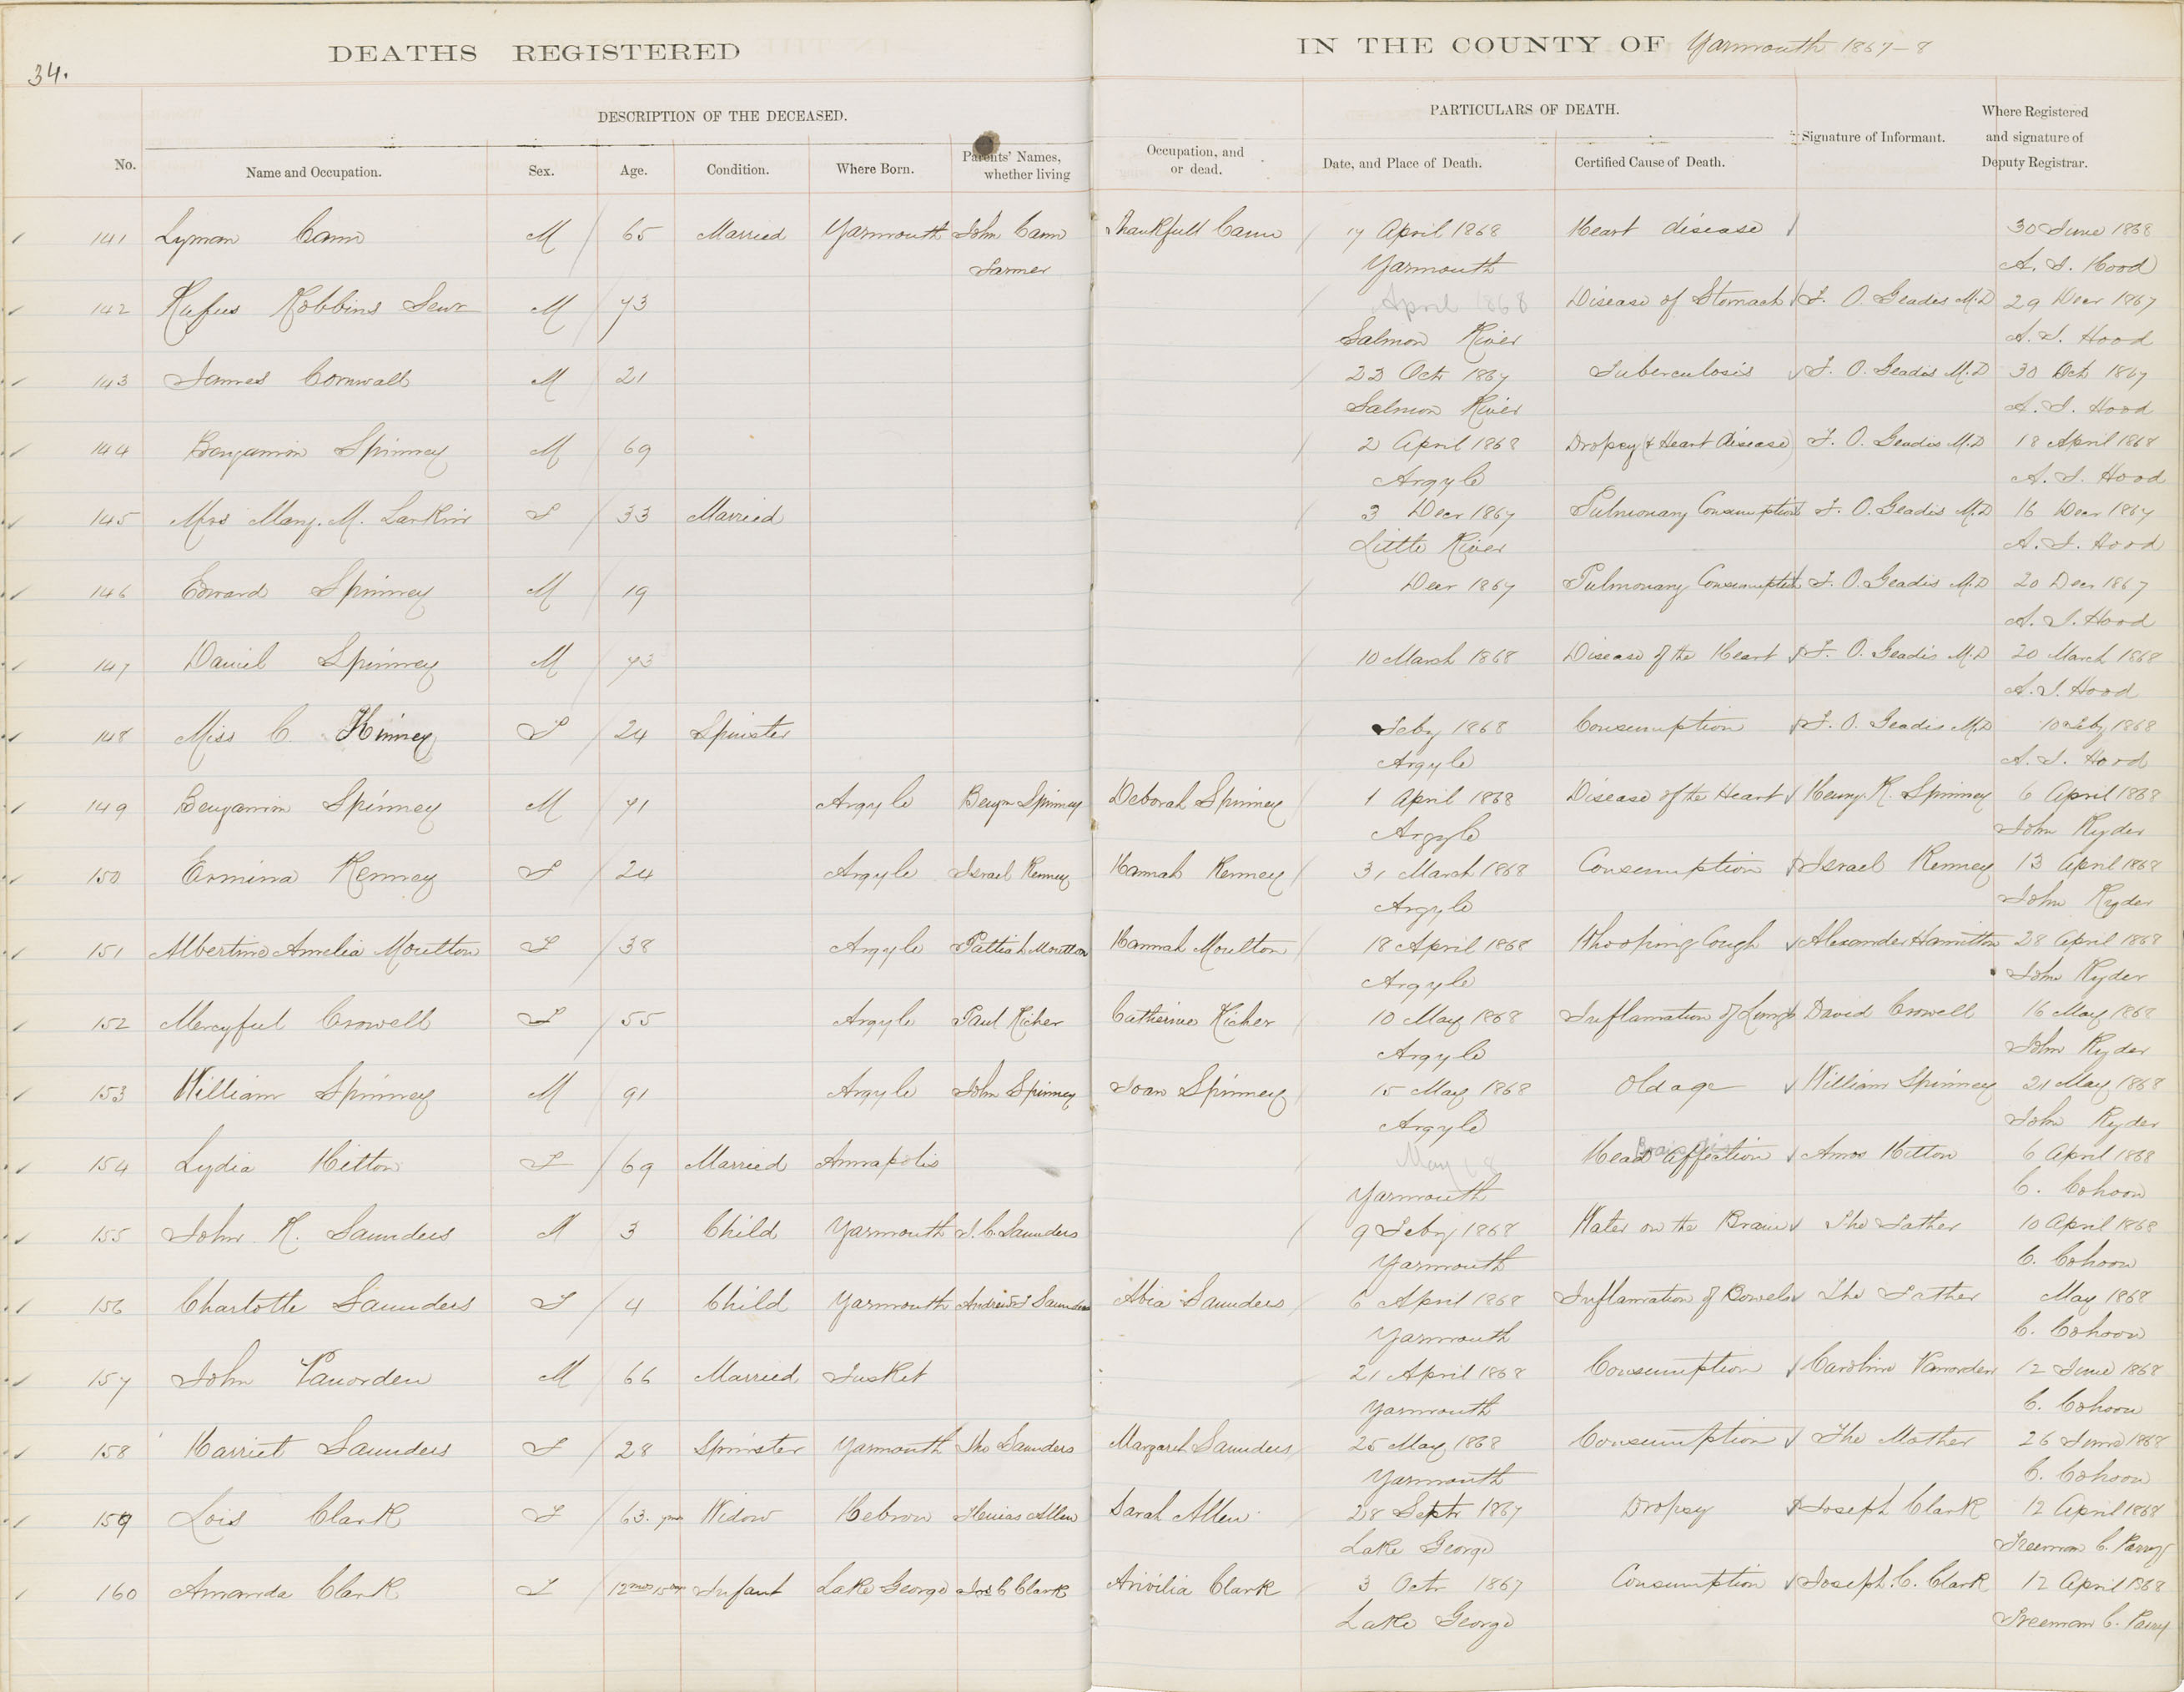 34.
DEATHS REGISTERED IN THE COUNTY OF Yarmouth 1867-8
DESCRIPTION OF THE DECEASED. PARTICULARS OF DEATH.
No. Name and Occupation. Sex. Age. Condition. Where Born. Parents' Names, whether living Occupation, and or dead. Date, and Place of Death. Certified Cause of Death. Signature of Informant. Where Registered and signature of Deputy Registrar.
141 Lyman Cann M 65 Married Yarmouth John Cann Thankfull Cann 17 April 1868 Heart disease 30 June 1868
Farmer Yarmouth A. J. Hood
142 Rufus Robbins Senr M 73 April 1868 Disease of Stomach J. O. Geadis M.D 29 Decr 1867
Salmon River A. J. Hood
143 James Cornwall M 21 23 Oct 1867 Tuberculosis J. O. Geadis M.D 30 Oct 1867
Salmon River A. J. Hood
144 Benjamin Spinney M 69 2 April 1868 Dropsy (& Heart disease) J. O. Geadis M.D 18 April 1868
Argyle A. J. Hood
145 Mrs Mary. M. Larkin F 33 Married 3 Decr 1867 Pulmonary Consumption J. O. Geadis M.D 16 Decr 1867
Little River A. J. Hood
146 Edward Spinney M 19 Decr 1867 Pulmonary Consumption J. O. Geadis M.D 20 Decr 1867
A. J. Hood
147 Daniel Spinney M 73 10 March 1868 Disease of the Heart J. O. Geadis M.D 20 March 1868
A. J. Hood
148 Miss C. Kinney F 24 Spinster Feby 1868 Consumption J. O. Geadis M.D 10 Feby 1868
Argyle A. J. Hood
149 Benjamin Spinney M 71 Argyle Benjn Spinney Deborah Spinney 1 April 1868 Disease of the Heart Henry. K. Spinney 6 April 1868
Argyle John Ryder
150 Ermina Kenney F 24 Argyle Israel Kenney Hannah Kenney 31 March 1868 Consumption Israel Kenney 13 April 1868
Argyle John Ryder
151 Albertine Amelia Moulton F 38 Argyle Moulton Hannah Moulton 18 April 1868 Whooping Cough Alexander Hamilton 28 April 1868
Argyle John Ryder
152 Mercyful Crowell F 55 Argyle Paul Kicher Catherine Kicher 10 May 1868 Inflamation of Lungs David Crowell 16 May 1868
Argyle John Ryder
153 William Spinney M 91 Argyle John Spinney Joan Spinney 15 May 1868 Old age William Spinney 21 May 1868
Argyle John Ryder
154 Lydia Hilton F 69 Married Annapolis May 68 Head affection Amos Hilton 6 April 1868
Yarmouth C. Cohoon
155 John K. Saunders M 3 Child Yarmouth J. C. Saunders 9 Feby 1868 Water on the Brain The Father 10 April 1868
Yarmouth C. Cohoon
156 Charlotte Saunders F 4 Child Yarmouth Andrew J Saunders Abia Saunders 6 April 1868 Inflamation of Bowels The Father May 1868
Yarmouth C. Cohoon
157 John Vanorden M 66 Married Tusket 21 April 1868 Consumption Caroline Vanorden 12 June 1868
Yarmouth C. Cohoon
158 Harriet Saunders F 28 Spinster Yarmouth Tho Saunders Margaret Saunders 25 May 1868 Consumption The Mother 26 June 1868
Yarmouth C. Cohoon
159 Lois Clark F 63. yrs Widow Hebron Allen Sarah Allen 28 Septr 1867 Dropsy Joseph Clark 12 April 1868
Lake George Freeman C. Parry
160 Amanda Clark F 12 mos 15 days Infant Lake George Jos C Clark Arivilia Clark 3 Octr 1867 Consumption Joseph. C. Clark 12 April 1868
Lake George Freeman C. Parry